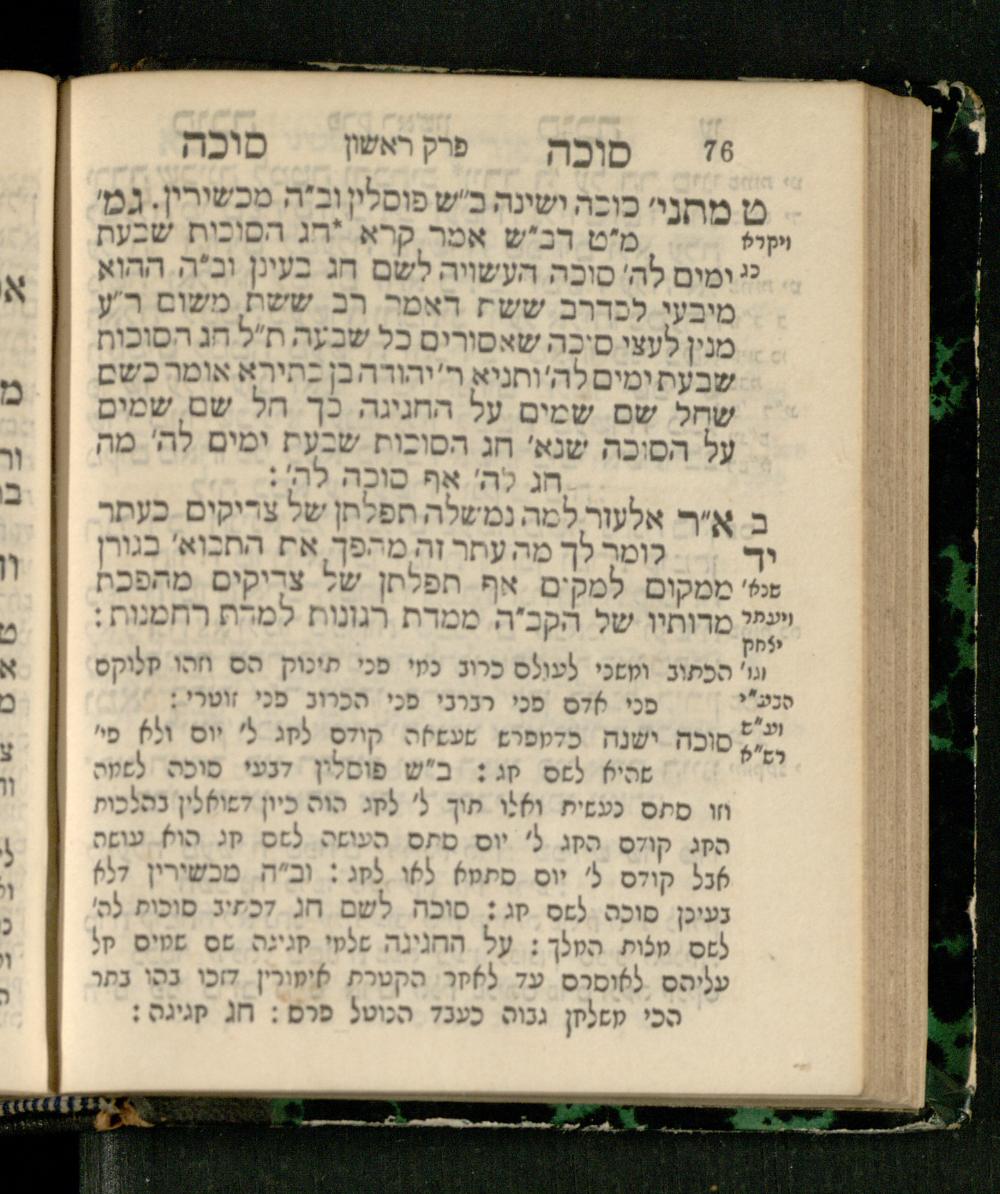 76 סוכה פרק ראשון סוכה
ט מתני׳ סוכה ישינה ב״ש פוסלין וב״ה מכשירין. גמ׳
ויקרא
מ״ט דב״ש אמר קרא *חג הסוכות שבעת
כג
ימים לה׳ סוכה העשויה לשם חג בעינן וב״ה ההוא
מיבעי לכדרב ששת דאמר רב ששת משום ר״ע
מנין לעצי סיכה שאסורים כל שבעה ת״ל חג הסוכות
שבעת ימים לה׳ ותניא ר׳ יהודה בן בתירא אומר כשם
שחל שם שמים על החגיגה כך חל שם שמים
על הסוכה שנא׳ חג הסוכות שבעת ימים לה׳ מה
חג לה׳ אף סוכה לה׳ :
ב א״ר אלעזר למה נמשלה תפלתן של צדיקים כעתר
יד לומר לך מה עתר זה מהפך את התבוא׳ בגורן
שנא׳
ממקום למקום אף תפלתן של צדיקים מהפכת
ויעתר
מדותיו של הקב״ה ממדת רגונות למדת רחמנות :
יצחק
וגו׳
הכתוב ומשני לעולם כרוב כמי פני תינוק הם וזהו חלוקם
הבע״י
פני אדם פני רברבי פני הכרוב פני זוטרי :
וע״ש
סוכה ישנה כדמפרש שעשאה קודם לחג ל׳ יום ולא פי׳
רש״א
שהיא לשם חג : ב״ש פוסלין דבעי סוכה לשמה
וזו סתם נעשית ואלו תוך ל׳ לחג הוה כיון דשואלין בהלכות
החג קודם החג ל׳ יום סתם העושה לשם חג הוא עושה
אבל קודם ל׳ יום סתמא לאו לחג : וב״ה מכשירין דלא
בעינן סוכה לשם חג : סוכה לשם חג דכתיב סוכות לה׳
לשם מצות המלך : על החגיגה שלמי חגיגה שם שמים חל
עליהם לאוסרם עד לאחר הקטרת אימורין דזכו בהו בתר
הכי משלחן גבוה כעבד הנוטל פרס : חג חגיגה :